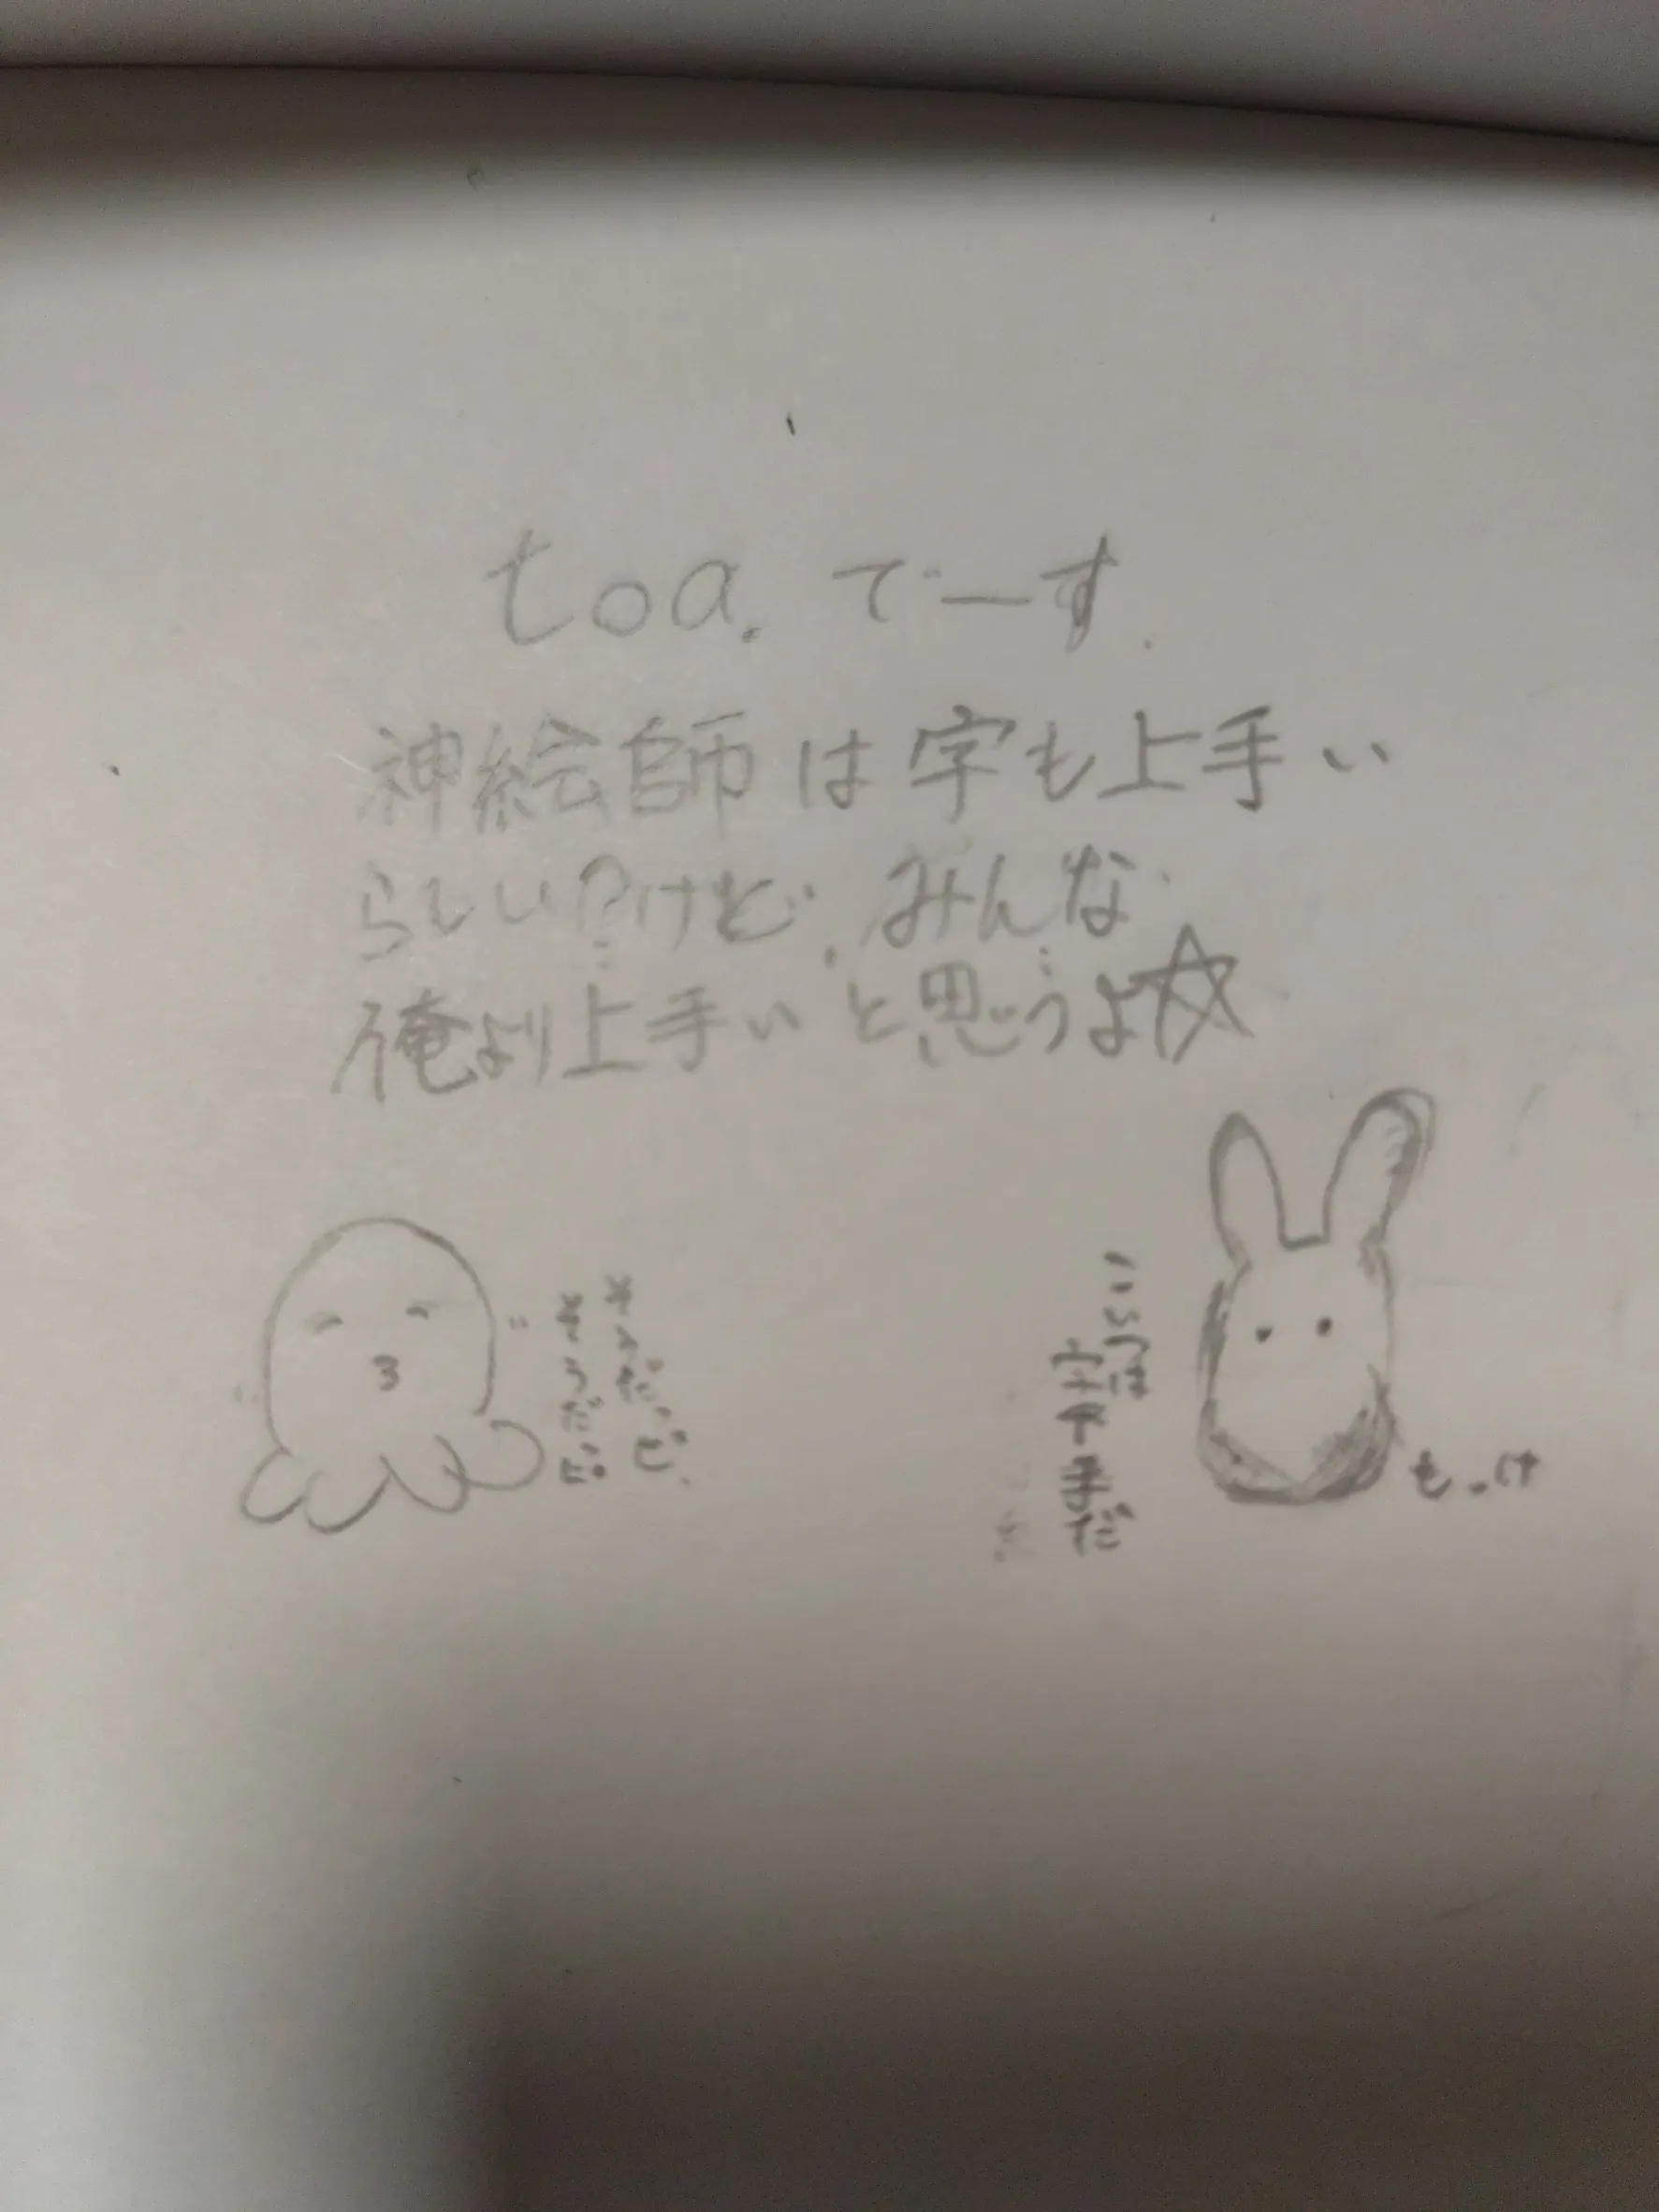 toa. でーす.
神絵師は字も上手い
らしい?けど、みんな
俺より上手いと思うよ☆
そうだど、
そうだど
こいつは
字下手だ
も.け